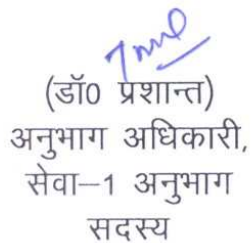 (डॉ0 प्रशान्त)
अनुभाग अधिकारी,
सेवा–1 अनुभाग
सदस्य